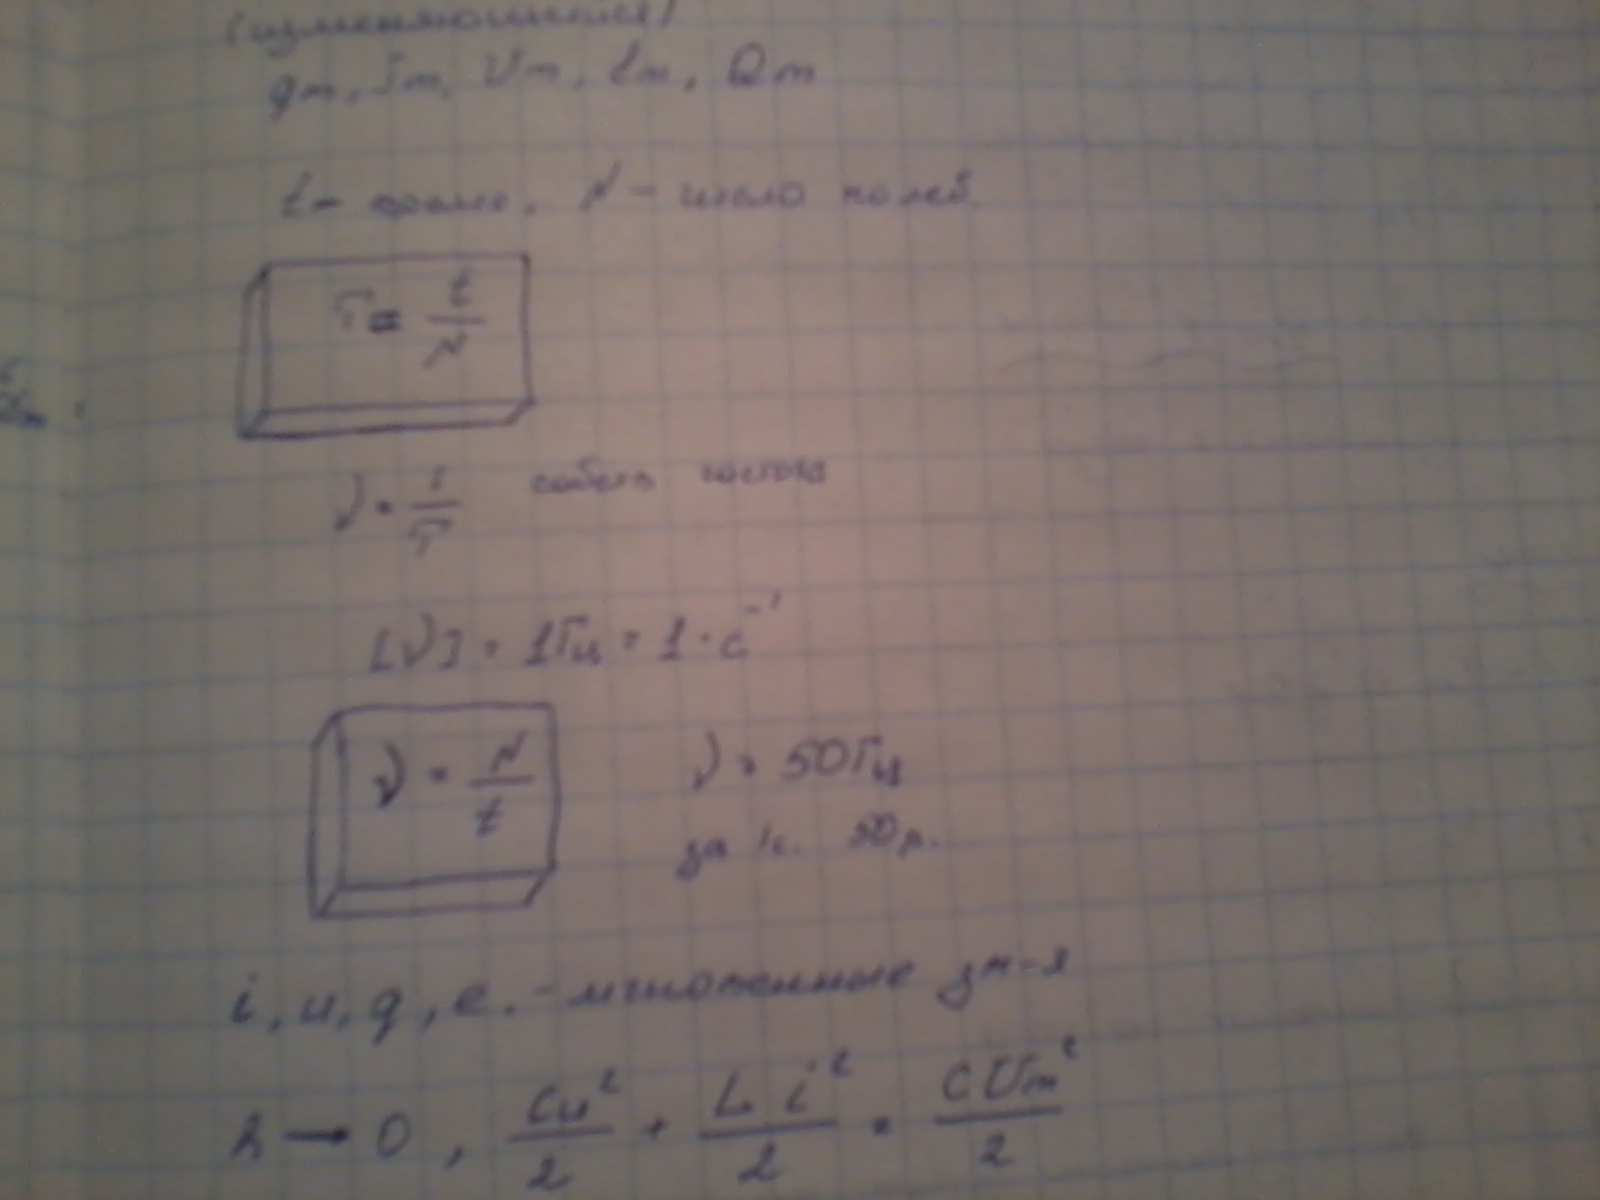 (изменяющиеся)
qm, Im, Um, εm, Qm
t – время, N – число колеб.
T = t/N
ν = 1/T собств частота
[ν] = 1Гц = 1·с⁻¹
ν = N/t
ν = 50Гц
за 1с. 50 р.
i, u, q, e. – мгновенные зн-я
→ 0, Cu²/2 + Li²/2 = CUm²/2